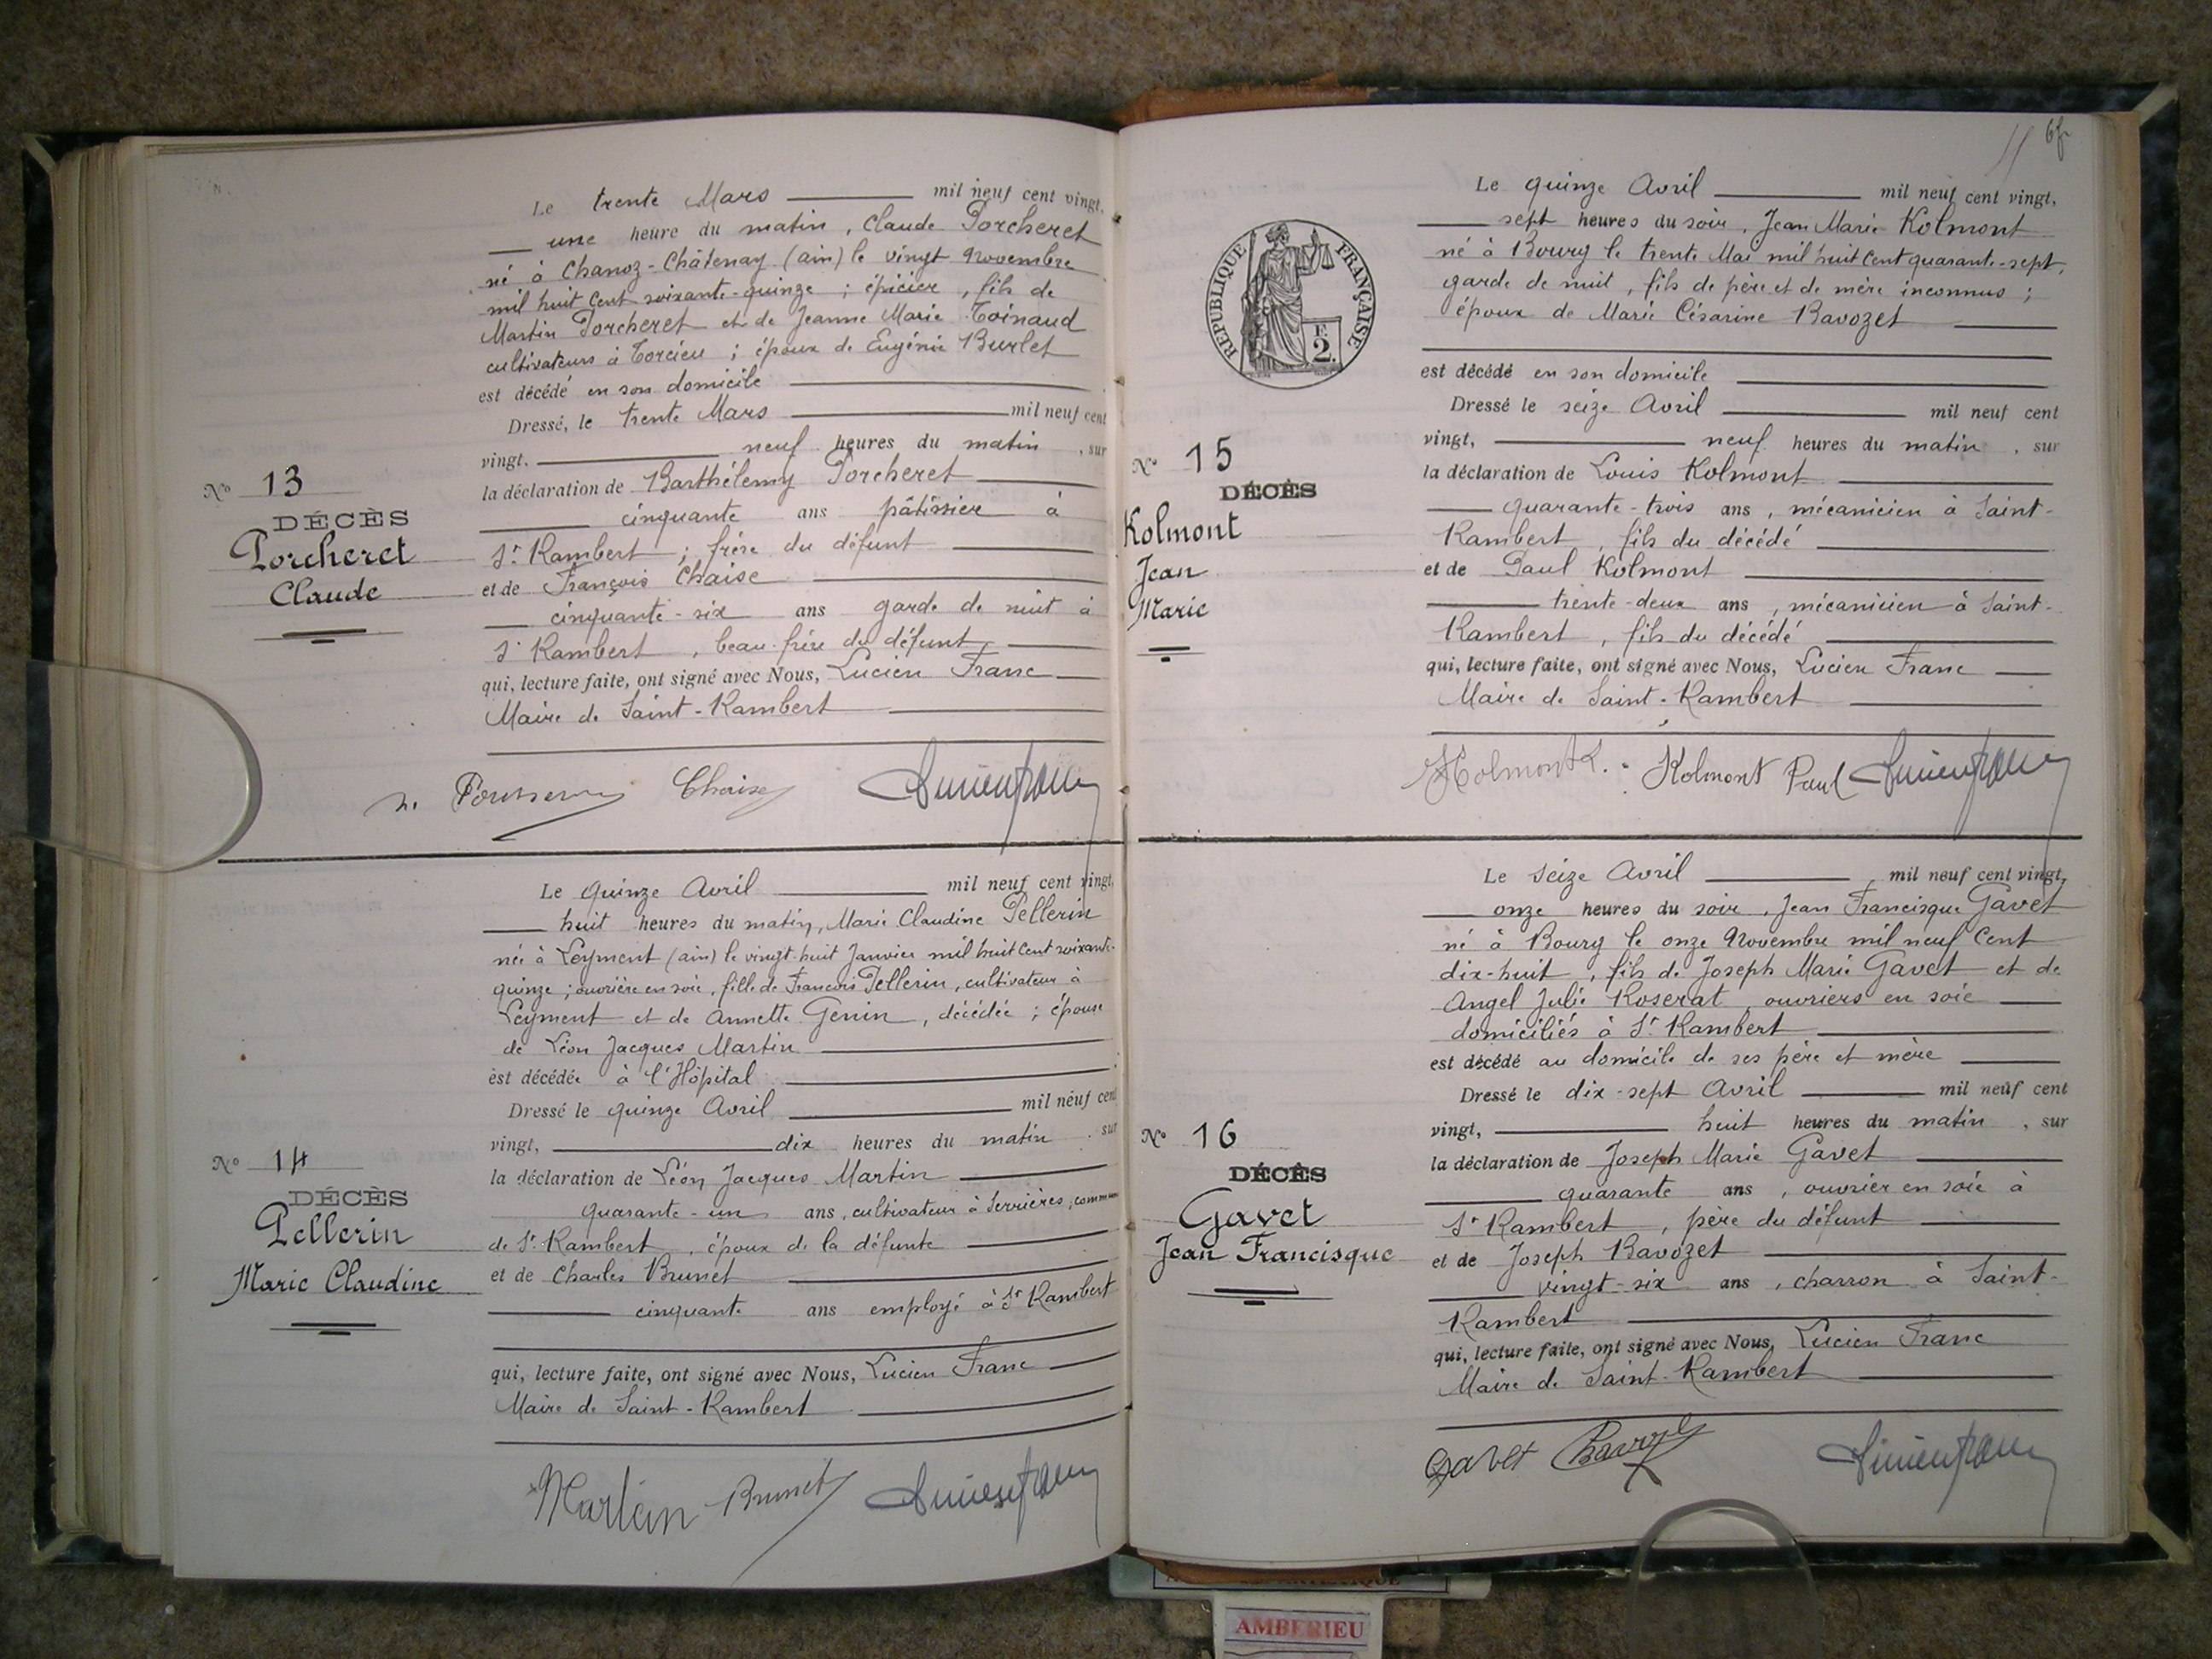 Le trente Mars mil neuf cent vingt,
une heure du matin, Claude Porcheret
né à Chanoz-Châtenay (ain) le vingt Novembre
mil huit cent soixante-quinze ; épicier, fils de
Martin Porcheret et de Jeanne Marie Toinaud
cultivateurs à Torcieu ; époux de Eugénie Burlet
est décédé en son domicile
Dressé, le trente Mars mil neuf cent
vingt, neuf heures du matin, sur
la déclaration de Barthélemy Porcheret
cinquante ans pâtissier à
St Rambert ; frère du défunt
et de François Chaise
cinquante-six ans garde de nuit à
St Rambert, beau-frère du défunt
qui, lecture faite, ont signé avec Nous, Lucien Franc
Maire de Saint-Rambert
No 13
DÉCÈS
Porcheret
Claude
Chaise
Le quinze Avril mil neuf cent vingt,
huit heures du matin, Marie Claudine Pellerin
née à Leyment (ain) le vingt-huit Janvier mil huit cent soixante-
quinze ; ouvrière en soie, fille de François Pellerin, cultivateur à
Leyment et de Annette Genin, décédée ; épouse
de Léon Jacques Martin
est décédée à l'Hôpital
Dressé le quinze Avril mil neuf cent
vingt, dix heures du matin, sur
la déclaration de Léon Jacques Martin
quarante-un ans, cultivateur à Serrières, commune
de St Rambert, époux de la défunte
et de Charles Brunet
cinquante ans employé à St Rambert
qui, lecture faite, ont signé avec Nous, Lucien Franc
Maire de Saint-Rambert
No 14
DÉCÈS
Pellerin
Marie Claudine
Martin Brunet
RÉPUBLIQUE FRANÇAISE
F.
2.
Le quinze Avril mil neuf cent vingt,
sept heures du soir, Jean Marie Kolmont
né à Bourg le trente Mai mil huit cent quarante-sept,
garde de nuit, fils de père et de mère inconnus ;
époux de Marie Césarine Ravozet
est décédé en son domicile
Dressé le seize Avril mil neuf cent
vingt, neuf heures du matin, sur
la déclaration de Louis Kolmont
quarante-trois ans, mécanicien à Saint-
Rambert, fils du décédé
et de Paul Kolmont
trente-deux ans, mécanicien à Saint-
Rambert, fils du décédé
qui, lecture faite, ont signé avec Nous, Lucien Franc
Maire de Saint-Rambert
No 15
DÉCÈS
Kolmont
Jean
Marie
Kolmont L. Kolmont Paul
Le seize Avril mil neuf cent vingt,
onze heures du soir, Jean Francisque Gavet
né à Bourg le onze Novembre mil neuf cent
dix-huit, fils de Joseph Marie Gavet et de
Angel Julie Roserat, ouvriers en soie
domiciliés à St Rambert
est décédé au domicile de ses père et mère
Dressé le dix-sept Avril mil neuf cent
vingt, huit heures du matin, sur
la déclaration de Joseph Marie Gavet
quarante ans, ouvrier en soie à
St Rambert, père du défunt
et de Joseph Ravozet
vingt-six ans, charron à Saint-
Rambert
qui, lecture faite, ont signé avec Nous, Lucien Franc
Maire de Saint-Rambert
No 16
DÉCÈS
Gavet
Jean Francisque
Gavet
AMBERIEU